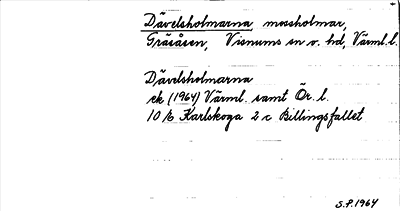 Dävelsholmarna, mossholmar,
Gråsåsen, Visnums sn o. hd, Värml. l.
Dävelsholmarna
ek (1964) Värml. samt Ör. l.
10 E Karlskoga 2 c Billingsfallet
S.P. 1964